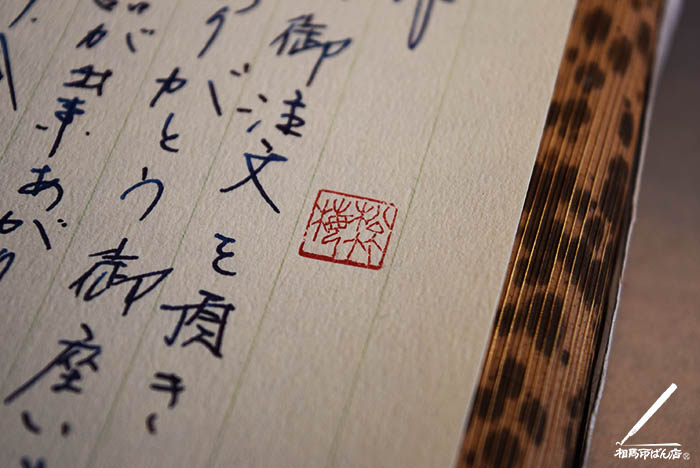 御注文を頂き
りがとう御座い
品が出来あがり
松竹
梅
相馬印ばん店®